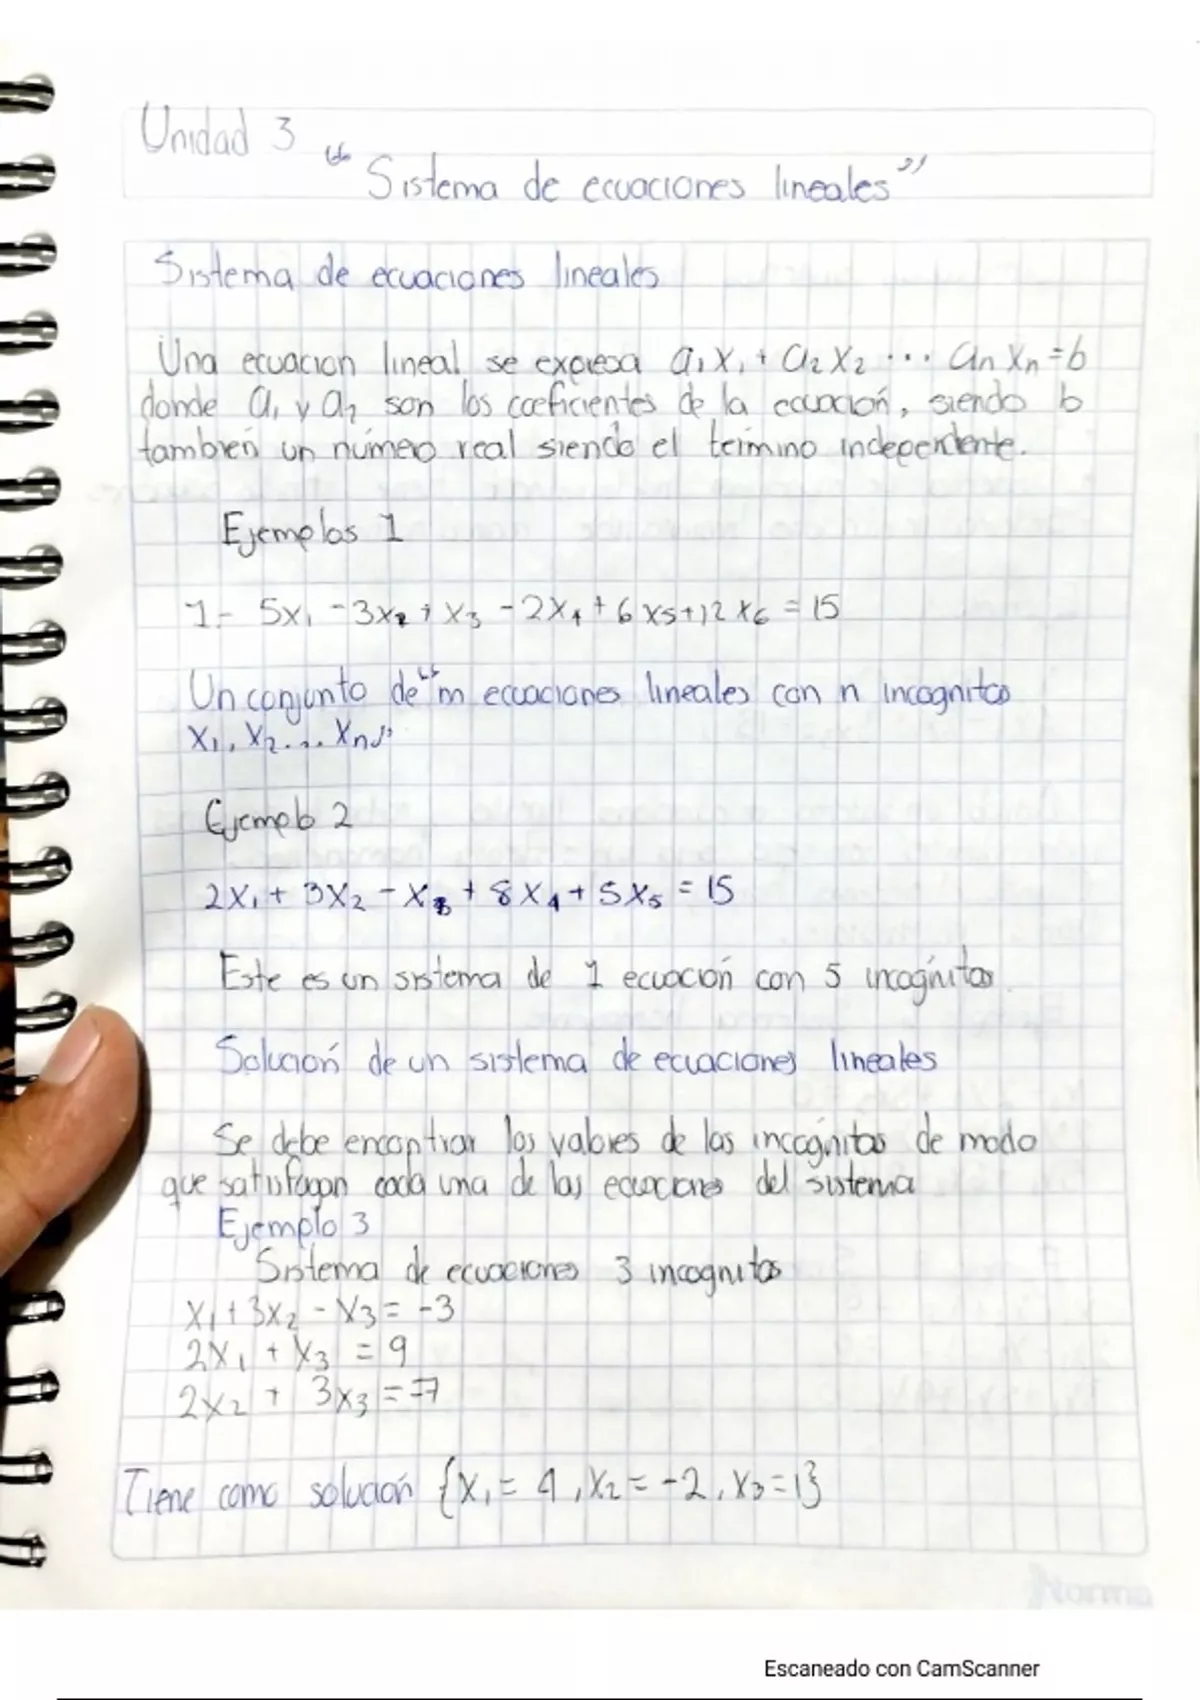 Unidad 3
"Sistema de ecuaciones lineales"
Sistema de ecuaciones lineales
Una ecuacion lineal se expresa a₁x₁ + a₂x₂ ... anxn = b
donde a₁ y a₂ son los coeficientes de la ecuación, siendo b
tambien un número real siendo el termino independente.
Ejemplos 1
1.- 5x₁ - 3x₂ + x₃ - 2x₄ + 6x₅ + 12x₆ = 15
Un conjunto de "m ecuaciones lineales con n incognitas
x₁, x₂ ... xn"
Ejemplo 2
2x₁ + 3x₂ - x₃ + 8x₄ + 5x₅ = 15
Este es un sistema de 1 ecuación con 5 incógnitas
Solución de un sistema de ecuaciones lineales
Se debe encontrar los valores de las incógnitas de modo
que satisfagan cada una de las ecuaciones del sistema
Ejemplo 3
Sistema de ecuaciones 3 incognitas
x₁ + 3x₂ - x₃ = -3
2x₁ + x₃ = 9
2x₂ + 3x₃ = -7
Tiene como solución {x₁ = 4, x₂ = -2, x₃ = 1}
Norma
Escaneado con CamScanner